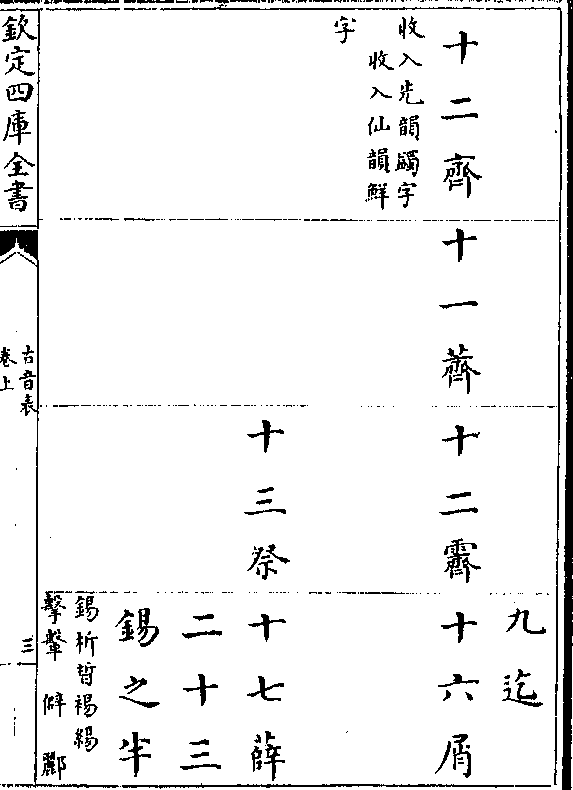 九迄
十二齊
十一薺
十二霽
十六屑
收入先韻蠲字
收入仙韻鮮
字
十三祭
十七薛
二十三
錫之半
錫析晳裼緆
擊鼙僻酈
欽定四庫全書
古音表
卷上
三